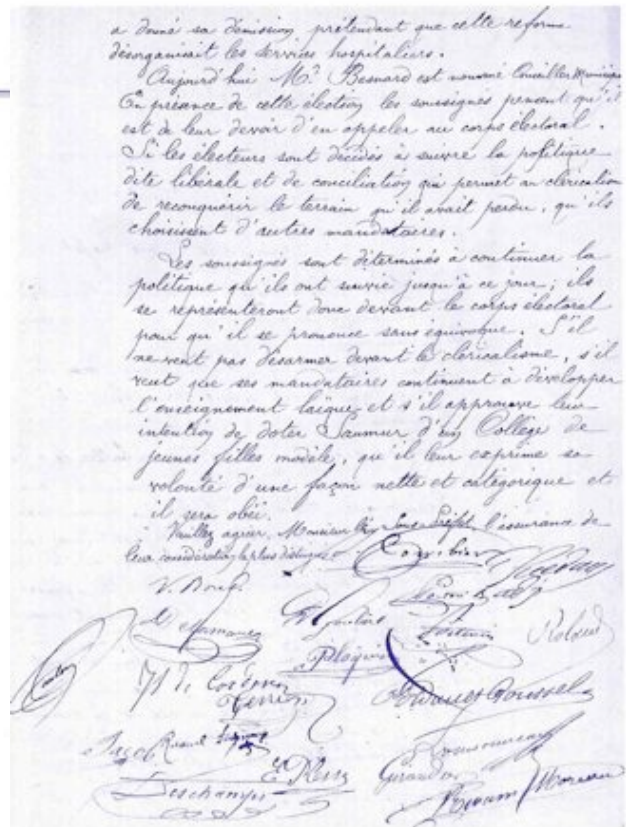 a donné sa démission prétendant que cette reforme
désorganisait les services hospitaliers.
Aujourd'hui Mr. Besnard est nommé Conseiller Municipal
En présence de cette élection les soussignés pensent qu'il
est de leur devoir d'en appeler au corps électoral.
Si les électeurs sont décidés à suivre la politique
dite libérale et de conciliation qui permet au cléricalisme
de reconquérir le terrain qu'il avait perdu, qu'ils
choisissent d'autres mandataires.
Les soussignés sont déterminés à continuer la
politique qu'ils ont suivie jusqu'à ce jour; ils
se représenteront donc devant le corps électoral
pour qu'il se prononce sans équivoque. S'il
ne veut pas désarmer devant le cléricalisme, s'il
veut que ses mandataires continuent à développer
l'enseignement laïque et s'il approuve leur
intention de doter Saumur d'un Collège de
jeunes filles modèle, qu'il leur exprime sa
volonté d'une façon nette et catégorique et
il sera obéi.
Veuillez agréer, Monsieur le Sous-Préfet l'assurance de
leur considération la plus distinguée
Jacob
Girandon
Deschamps
Moreau